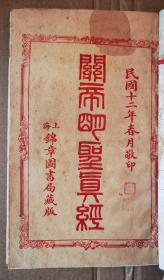 民國十二年春月敬印
關帝明聖真經
上海
錦章圖書局藏版